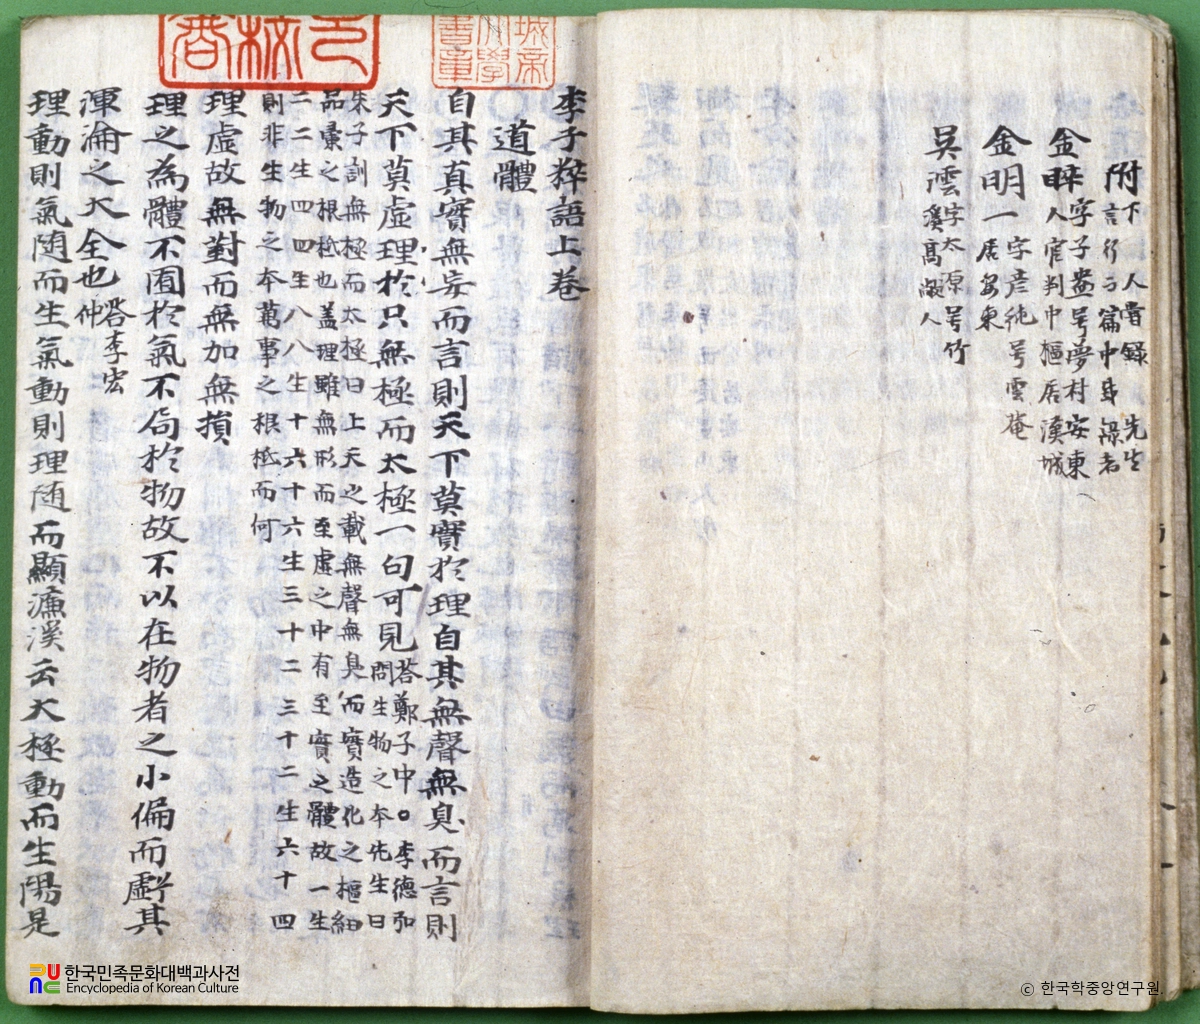 附下人嘗錄先生
言行
篇中
錄者
金睟字子盎号夢村安東
人官判中樞居漢城
金明一字彦純号雲菴
居安東
吳澐字太源号竹
高敞人
李子粹語上卷
道體
自其真實無妄而言則天下莫實於理自其無聲無臭而言則
天下莫虛理於只無極而太極一句可見答鄭子中○李德弘
問生物之本先生曰
朱子訓無極而太極曰上天之載無聲無臭而實造化之樞紐
品彙之根柢也盖理雖無形而至虛之中有至實之體故一生
二二生四四生八八生十六十六生三十二三十二生六十四
則非生物之本萬事之根柢而何
理虛故無對而無加無損
理之為體不囿於氣不局於物故不以在物者之小偏而虧其
渾淪之大全也答李宏
仲
理動則氣随而生氣動則理随而顯濂溪云太極動而生陽是
城帝
學
書章
한국민족문화대백과사전
Encyclopedia of Korean Culture
ⓒ 한국학중앙연구원.